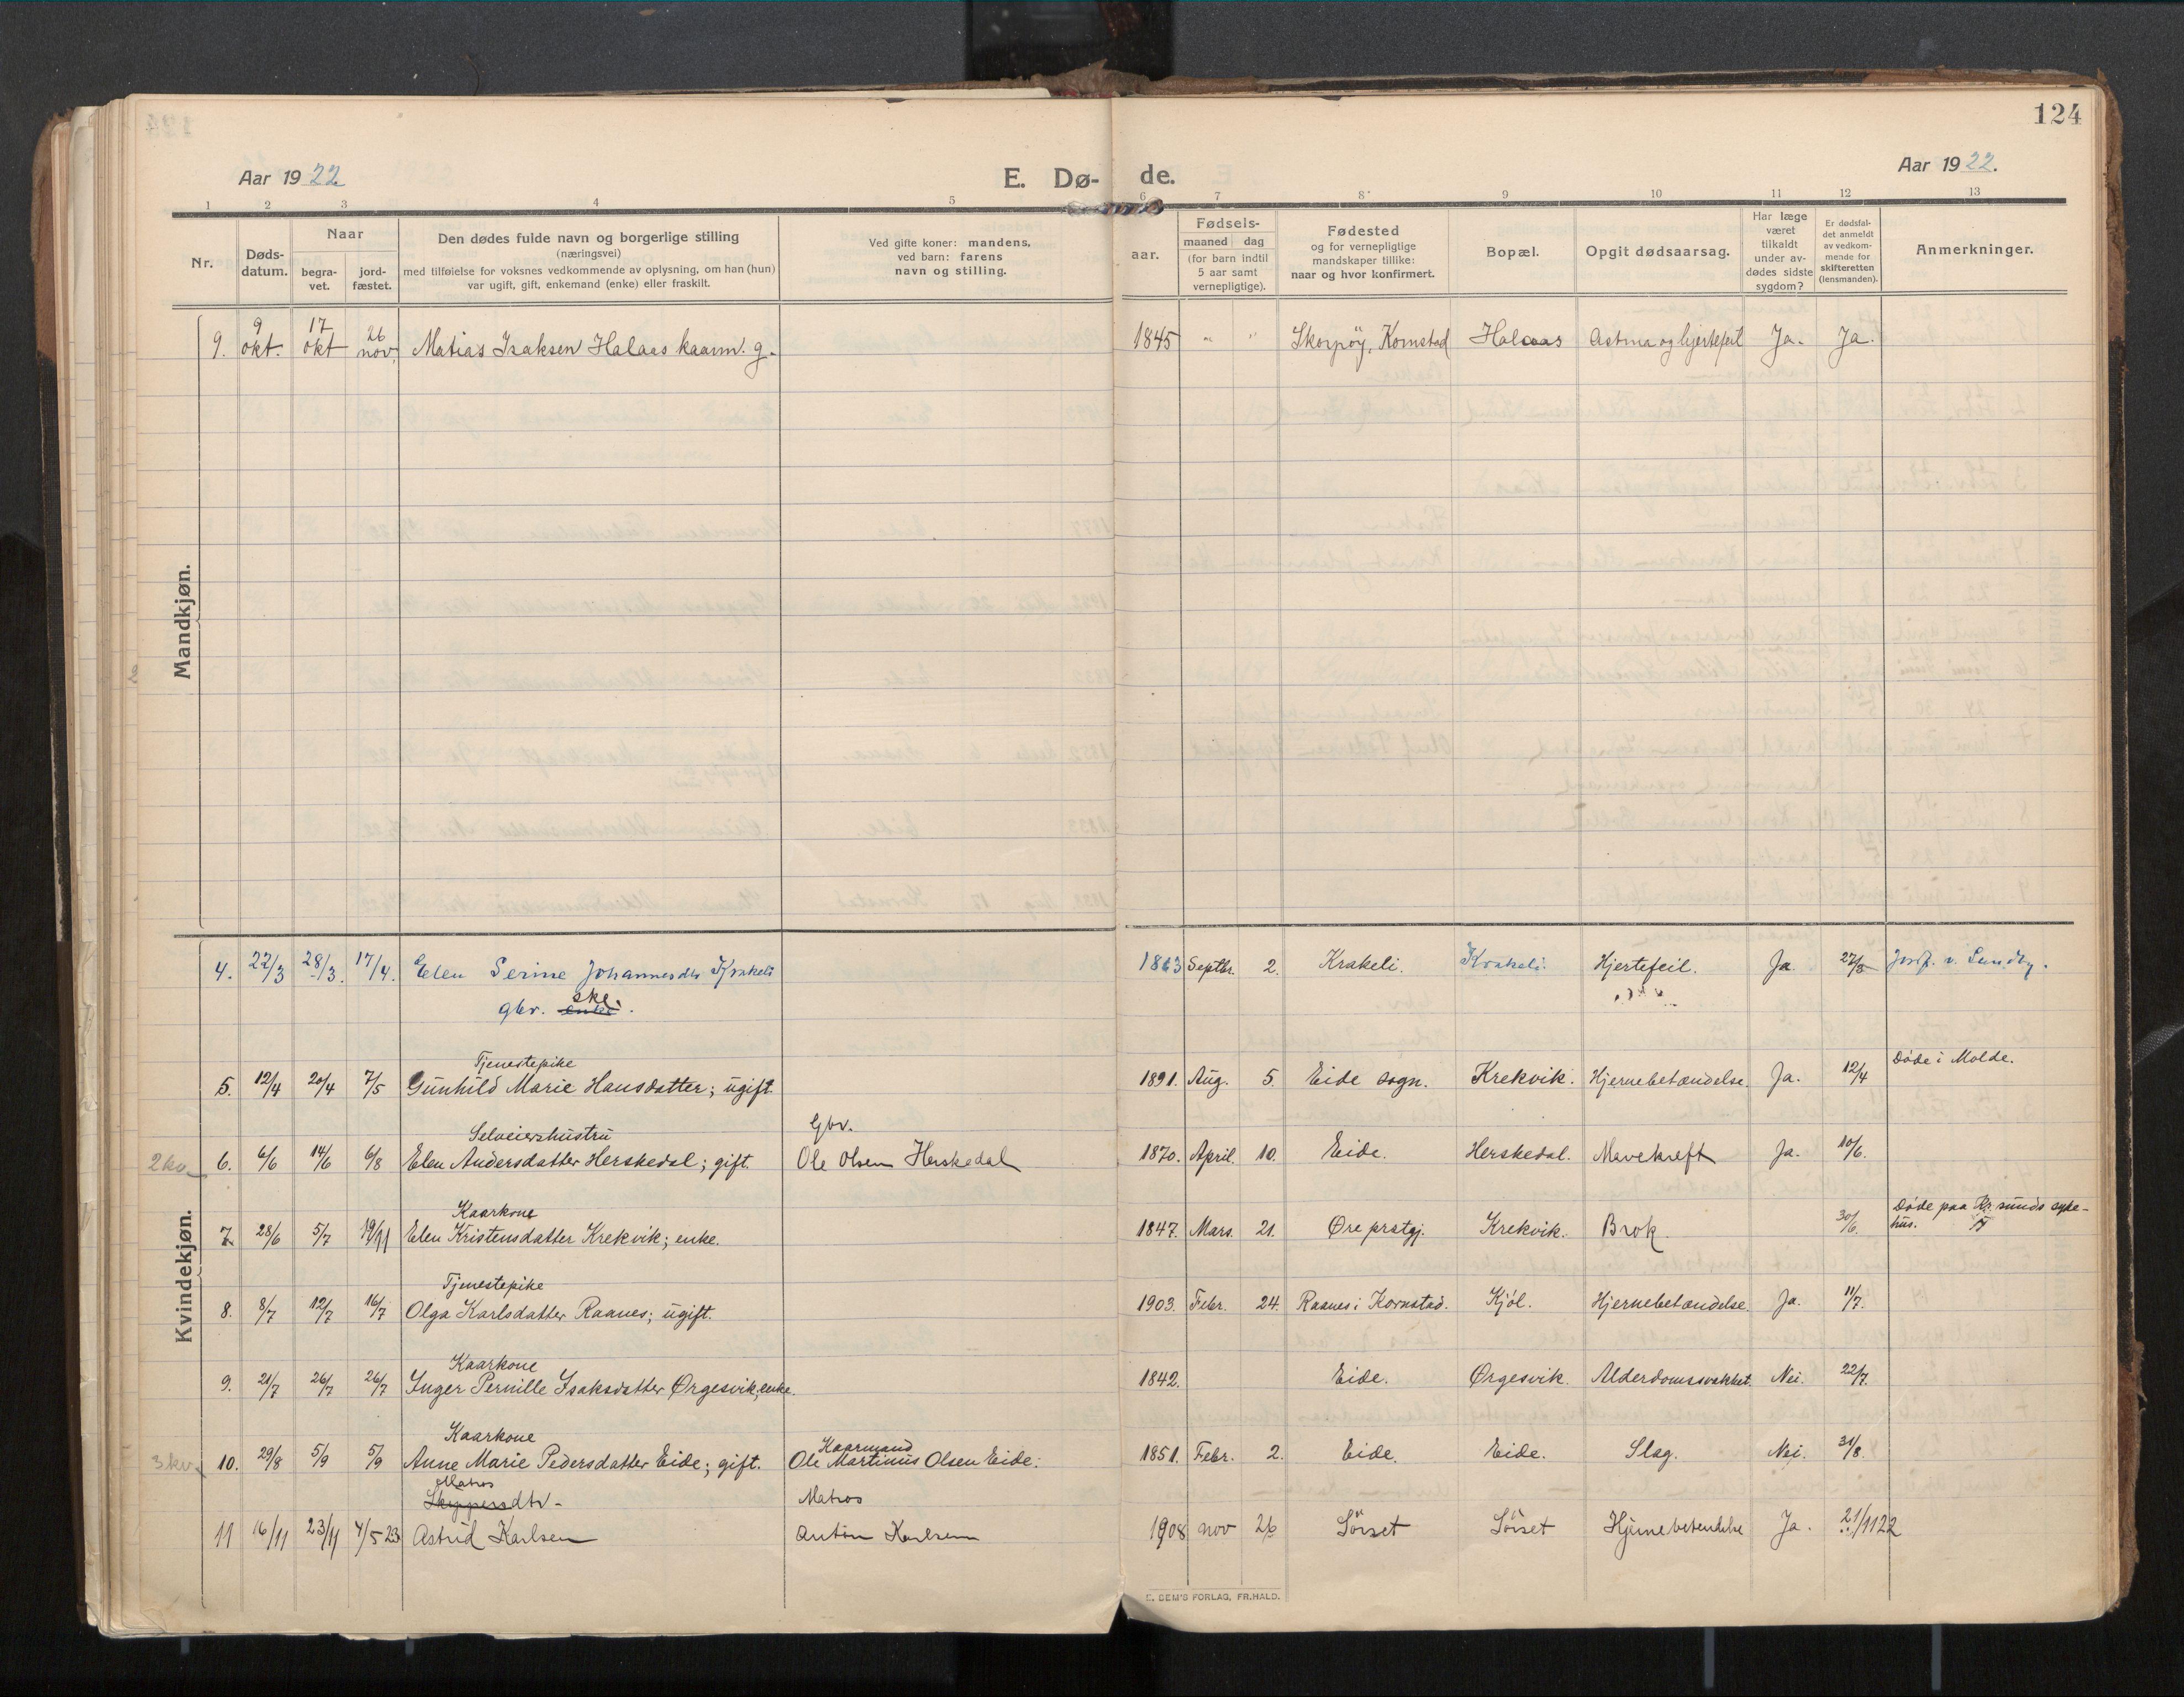 124
Aar 1922
E. Dø-
de.
Aar 1922.
1 2 3 4 5 6 7 8 9 10 11 12 13
Nr.
Døds-
datum.
Naar
begra-
vet.
jord-
fæstet.
Den dødes fulde navn og borgerlige stilling
(næringsvei)
med tilføielse for voksnes vedkommende av oplysning, om han (hun)
var ugift, gift, enkemand (enke) eller fraskilt.
Ved gifte koner: mandens,
ved barn: farens
navn og stilling.
aar.
Fødsels-
maaned dag
(for barn indtil
5 aar samt
vernepligtige).
Fødested
og for vernepligtige
mandskaper tillike:
naar og hvor konfirmert.
Bopæl.
Opgit dødsaarsag.
Har læge
været
tilkaldt
under av-
dødes sidste
sygdom?
Er dødsfal-
det anmeldt
av vedkom-
mende for
skifteretten
(lensmanden).
Anmerkninger.
Mandkjøn.
9. 9 okt. 17 okt 26 nov. Matias Isaksen Halaas kaarm. g. 1845 " " Skorpöy, Kornstad Halaas Astma og hjertefeil Ja. Ja.
Kvindekjøn.
4. 22/3 28/3. 17/4. Elen Serine Johannesdtr Krakeli 1863 Septbr. 2. Krakeli. Krakeli. Hjertefeil. Ja 27/3
gbr. enke. ske.
Tjenestepike
5. 12/4 20/4 7/5 Gunhild Marie Hansdatter; ugift. 1891. Aug. 5. Eide sogn. Krekvik. Hjernebetændelse. Ja. 12/4 Døde i Molde.
Selveierhustru Gbr.
2 kv. 6. 6/6 14/6 6/8 Elen Andersdatter Herskedal; gift. Ole Olsen Herskedal 1870. April. 10. Eide. Herskedal. Mavekreft Ja. 10/6.
Kaarkone
7. 28/6 5/7 19/11 Elen Kristensdatter Krekvik; enke. 1847. Mars. 21. Øre prstgj. Krekvik. Brok. 30/6. Døde paa Kr.sunds syke-
hus.
Tjenestepike
8. 8/7 12/7 16/7 Olga Karlsdatter Raanes; ugift. 1903. Febr. 24. Raanes i Kornstad. Kjöl. Hjernebetændelse. Ja. 11/7.
Kaarkone
9. 21/7 26/7 26/7 Inger Pernille Isaksdatter Ørgesvik, enke. 1842. Eide. Ørgesvik. Alderdomssvakhet. Nei. 22/7.
Kaarkone Kaarmand
3 kv. 10. 29/8 5/9 5/9 Anne Marie Pedersdatter Eide; gift. Ole Martinus Olsen Eide. 1851. Febr. 2. Eide. Eide. Slag. Nei. 31/8.
Matros
Skippersdtr- Matros
11 16/11 23/11 4/5 23 Astrid Karlsen Anton Karlsen 1908 nov 26 Sörset Sörset Hjernebetendelse Ja. 21/11 22
E. SEM'S FORLAG, FR.HALD.